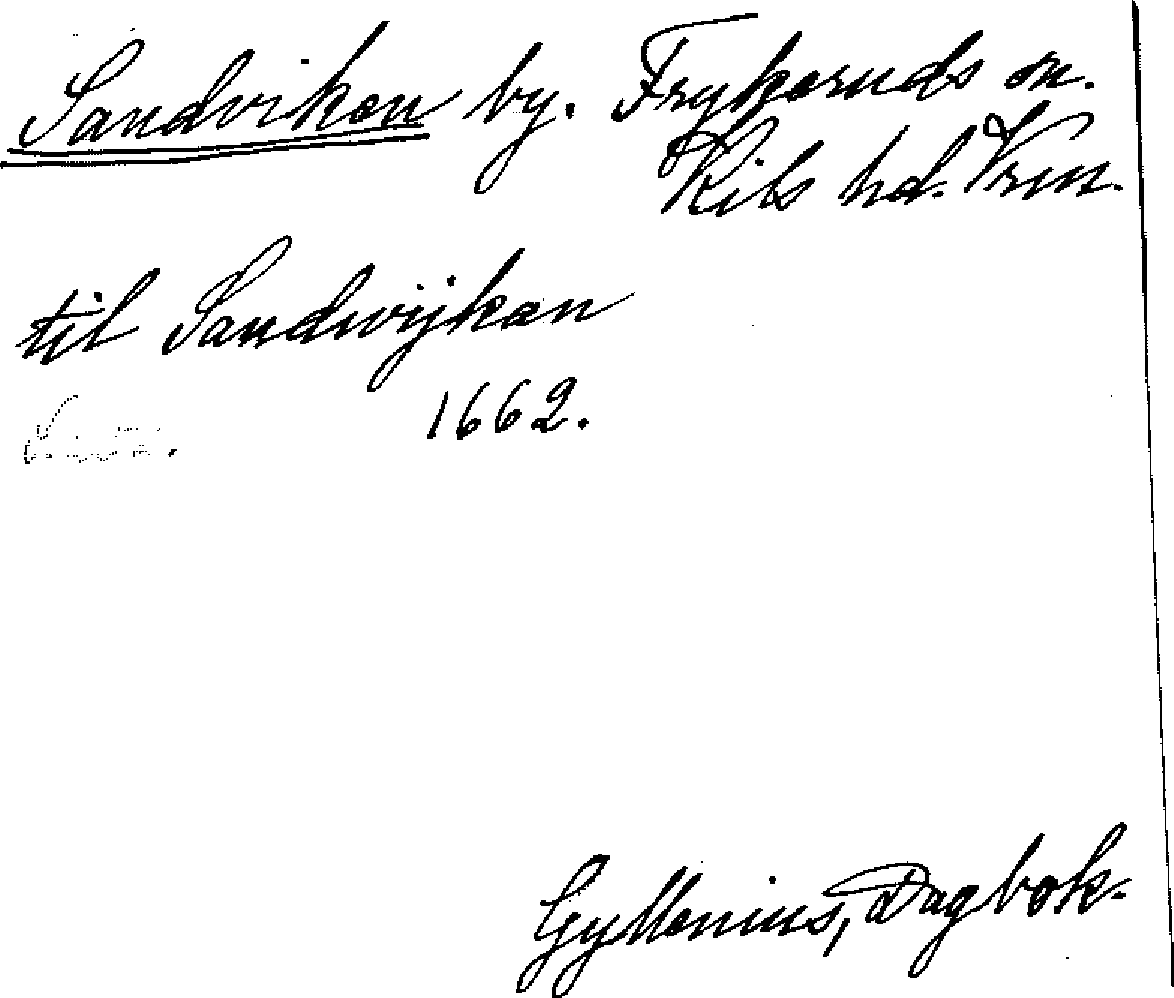 Sandviken by. Frykeruds sn.
Kils hd. Vrm.
til Sandwijken
1662.
Gyllenius, Dagbok.